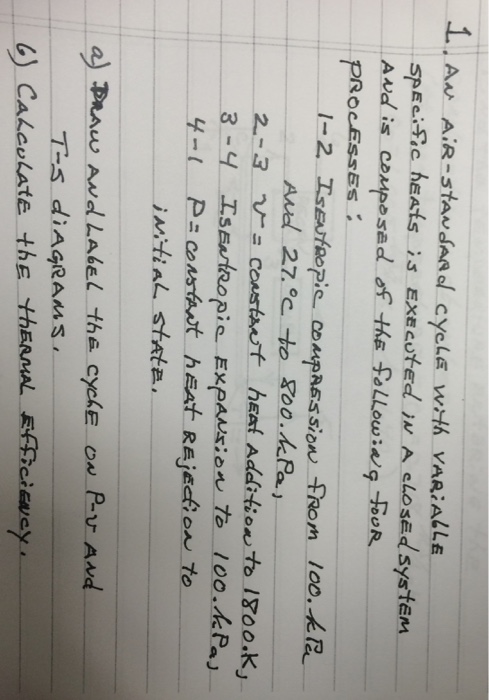 1. AN AiR-StANdARd cycle with vARiABle
specific heats is EXECUTEd iN A closed system
ANd is composed of the following four
PROCESSES:
1-2 ISENtRopic compRession from 100. kPa
ANd 27°C to 800. kPa,
2-3 v = constant heat Addition to 1800. K,
3-4 ISENtRopic EXPANSION to 100. kPa,
4-1 P = constant heat REjection to
iNitiAl state.
a) DRAW ANd LAbel the cycle ON P-v ANd
T-s diAGRAMS.
b) CALCULAte the theRMAl EfficiENcy.